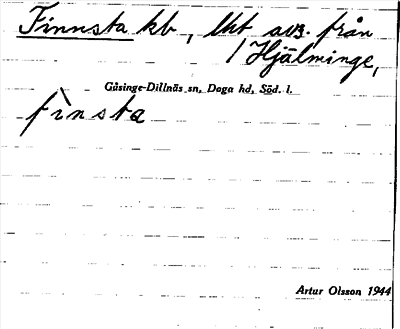 Finnsta kb, lht avs. från
/ Hjälminge,
Gåsinge-Dillnäs sn, Daga hd, Söd. l.
fìnsta
Artur Olsson 1944